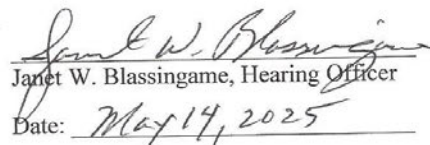 Janet W. Blassingame
Janet W. Blassingame, Hearing Officer
Date: May 14, 2025